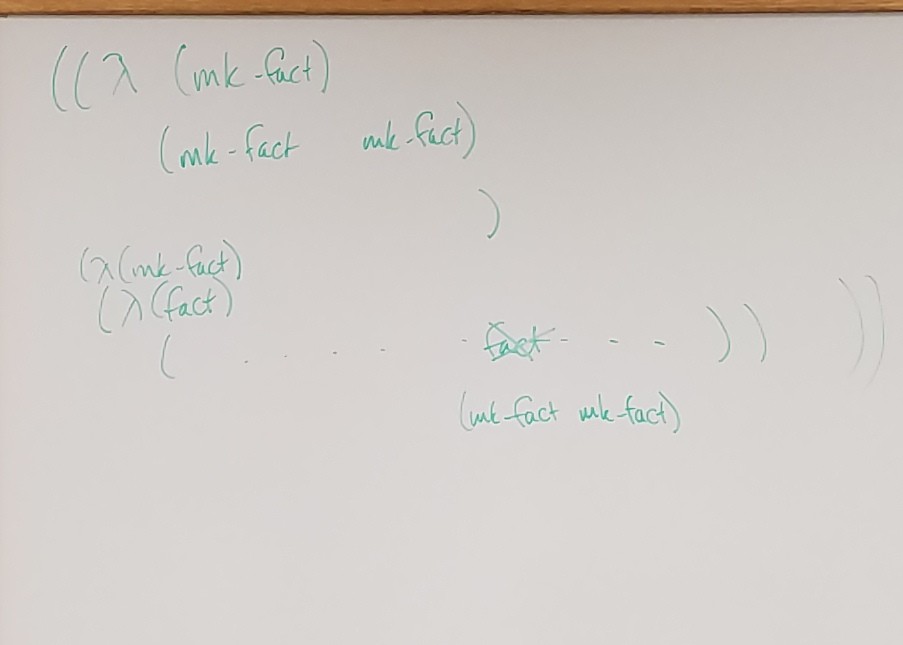 ((λ (mk-fact)
(mk-fact mk-fact)
)
(λ(mk-fact)
(λ(fact)
( . . . . . fact - - - )) ))
(mk-fact mk-fact)